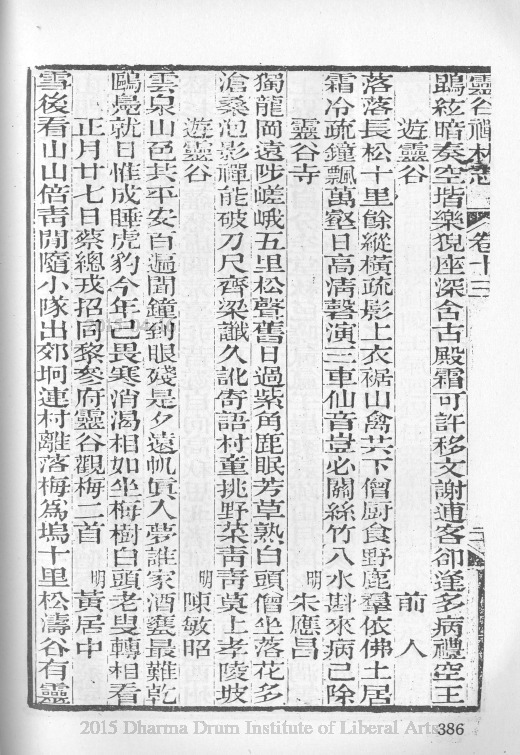 靈谷禪林志 卷十三 二
鵾絃暗奏空堦樂猊座深含古殿霜可許移文謝逋客卻逢多病禮空王
遊靈谷 前人
落落長松十里餘縱橫疏影上衣裾山禽共下僧厨食野鹿羣依佛土居
霜冷疏鐘飄萬壑日高清磬演三車仙音豈必關絲竹八水斟來病已除
靈谷寺 明朱應昌
獨龍岡遠陟嵯峨五里松聲舊日過紫角鹿眠芳草熟白頭僧坐落花多
滄桑泡影禪能破刀尺齊梁讖久訛寄語村童挑野菜靑靑莫上孝陵坡
遊靈谷 明陳敏昭
雲泉山邑共平安百遍聞鐘到眼殘是夕遠帆眞人夢誰家酒甕最難乾
鷗鳧就日惟成睡虎豹今年已畏寒消渴相如坐梅樹白頭老叟轉相看
正月廿七日蔡總戎招同黎參府靈谷觀梅二首 明黃居中
雪後看山山倍靑閒隨小隊出郊坰連村離落梅爲塢十里松濤谷有靈
2015 Dharma Drum Institute of Liberal Arts
386